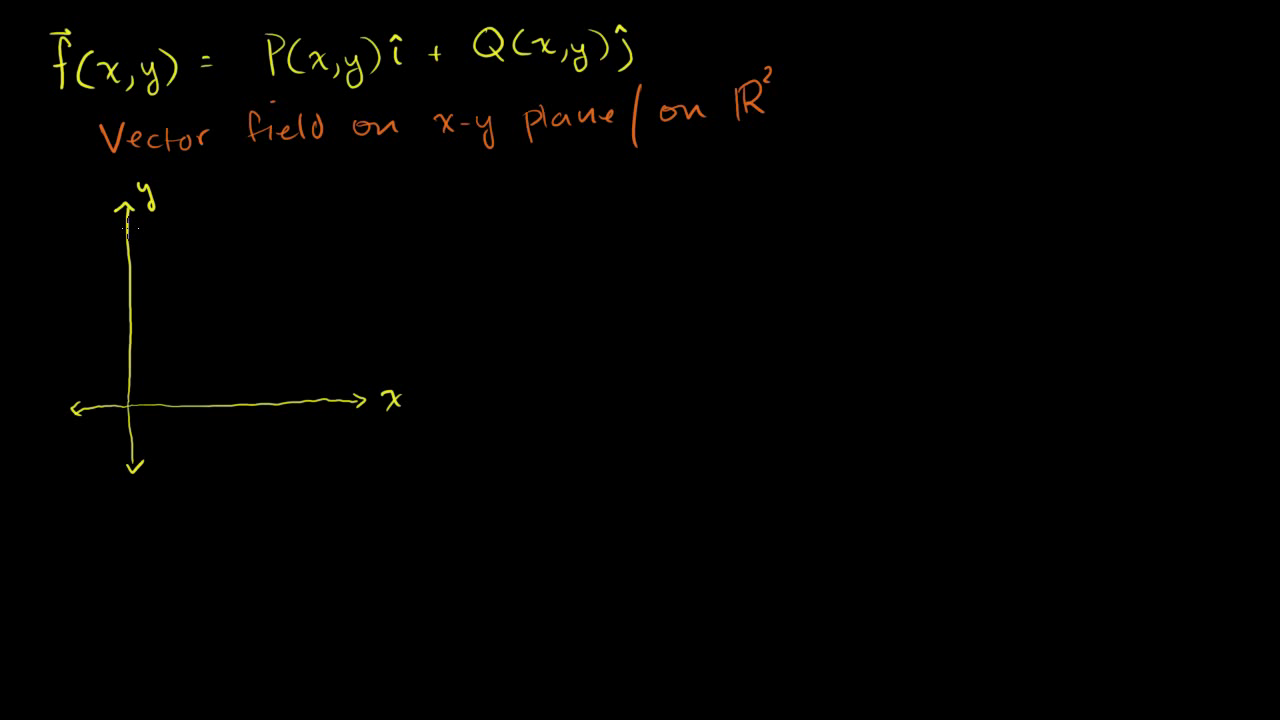 f⃗(x,y) = P(x,y)î + Q(x,y)ĵ
Vector field on x-y plane / on ℝ²
y
x